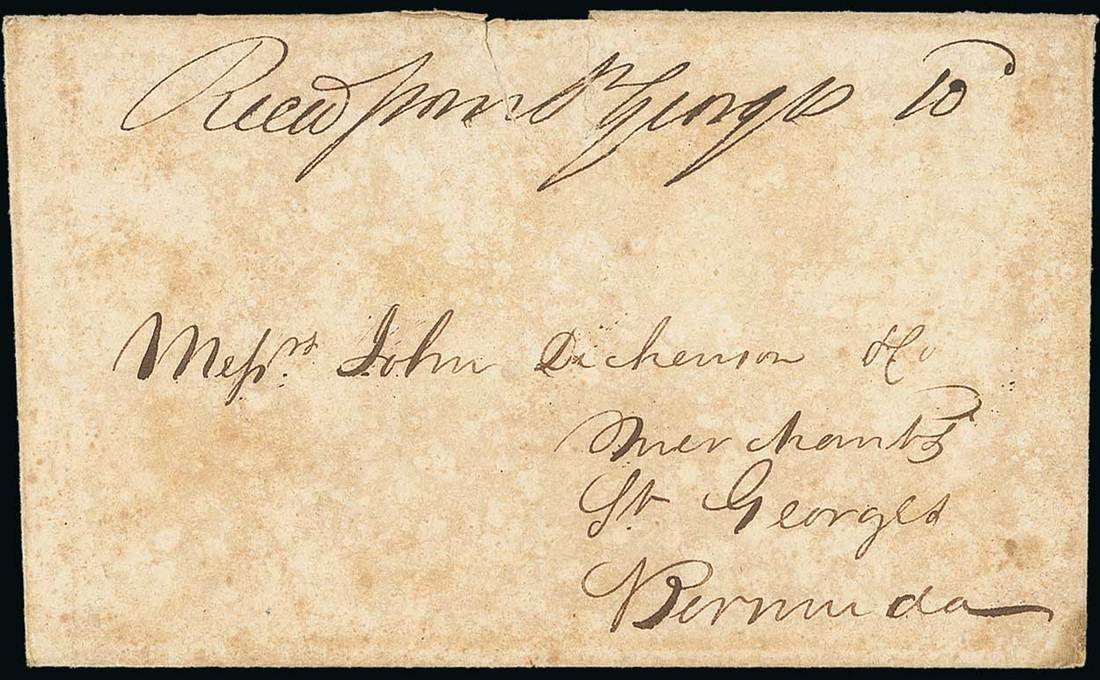 Recd from St Georges
Messrs. John Dickenson & Co
Merchants
St Georges
Bermuda